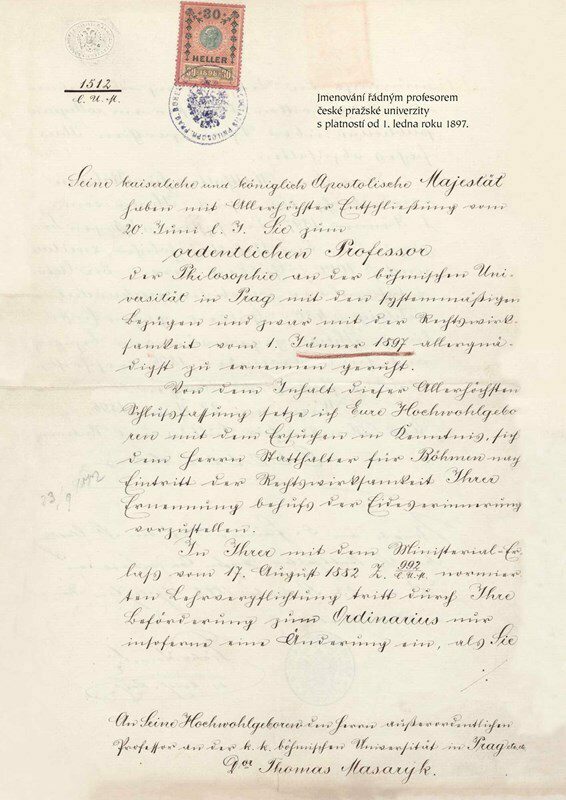 1512
C. U. M.
30
HELLER
Jmenování řádným profesorem
české pražské univerzity
s platností od 1. ledna roku 1897.
Seine kaiserliche und königlich Apostolische Majestät
haben mit Allerhöchster Entschließung vom
20. Juni l. J. Sie zum
ordentlichen Professor
der Philosophie an der böhmischen Uni-
versität in Prag mit den systemmäßigen
Bezügen und zwar mit der Rechtswirk-
samkeit vom 1. Jänner 1897 allergnä-
digst zu ernennen geruht.
Von dem Inhalt dieser Allerhöchsten
Schlußfassung setze ich Eure Hochwohlgebo
ren mit dem Ersuchen in Kenntnis, sich
dem Herrn Statthalter für Böhmen nach
Eintritt der Rechtswirksamkeit Ihrer
Ernennung behufs der Eideserinnerung
vorzustellen.
In Ihrer mit dem Ministerial-Er-
laß vom 17. August 1882 Z. 992 C.U.M. normier
ten Lehrverpflichtung tritt durch Ihre
Beförderung zum Ordinarius nur
insoferne eine Änderung ein, als Sie
./.
An Seine Hochwohlgeboren den Herrn außerordentlichen
Professor an der k. k. böhmischen Universität in Prag
Dor Thomas Masaryk.